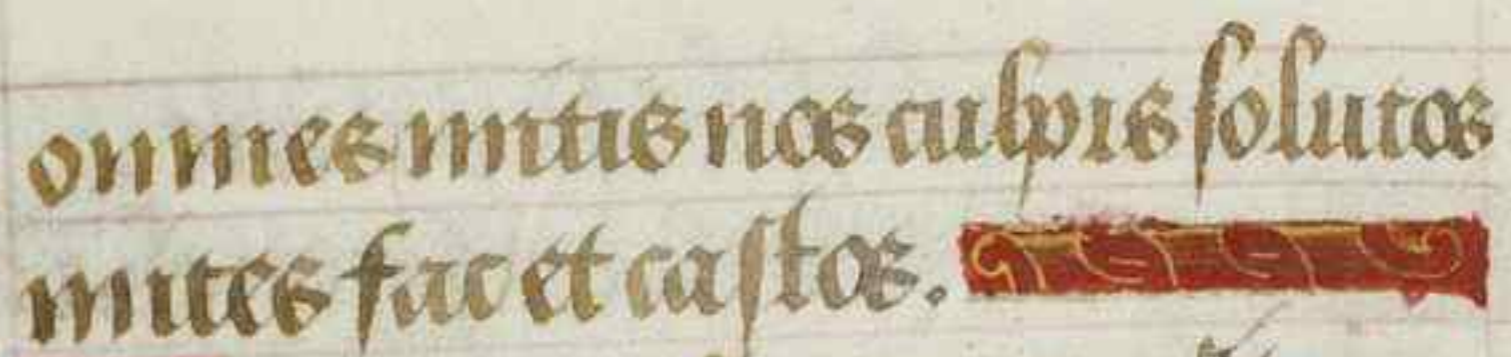 omnes mitis nos culpis solutos
mites fac et castos.